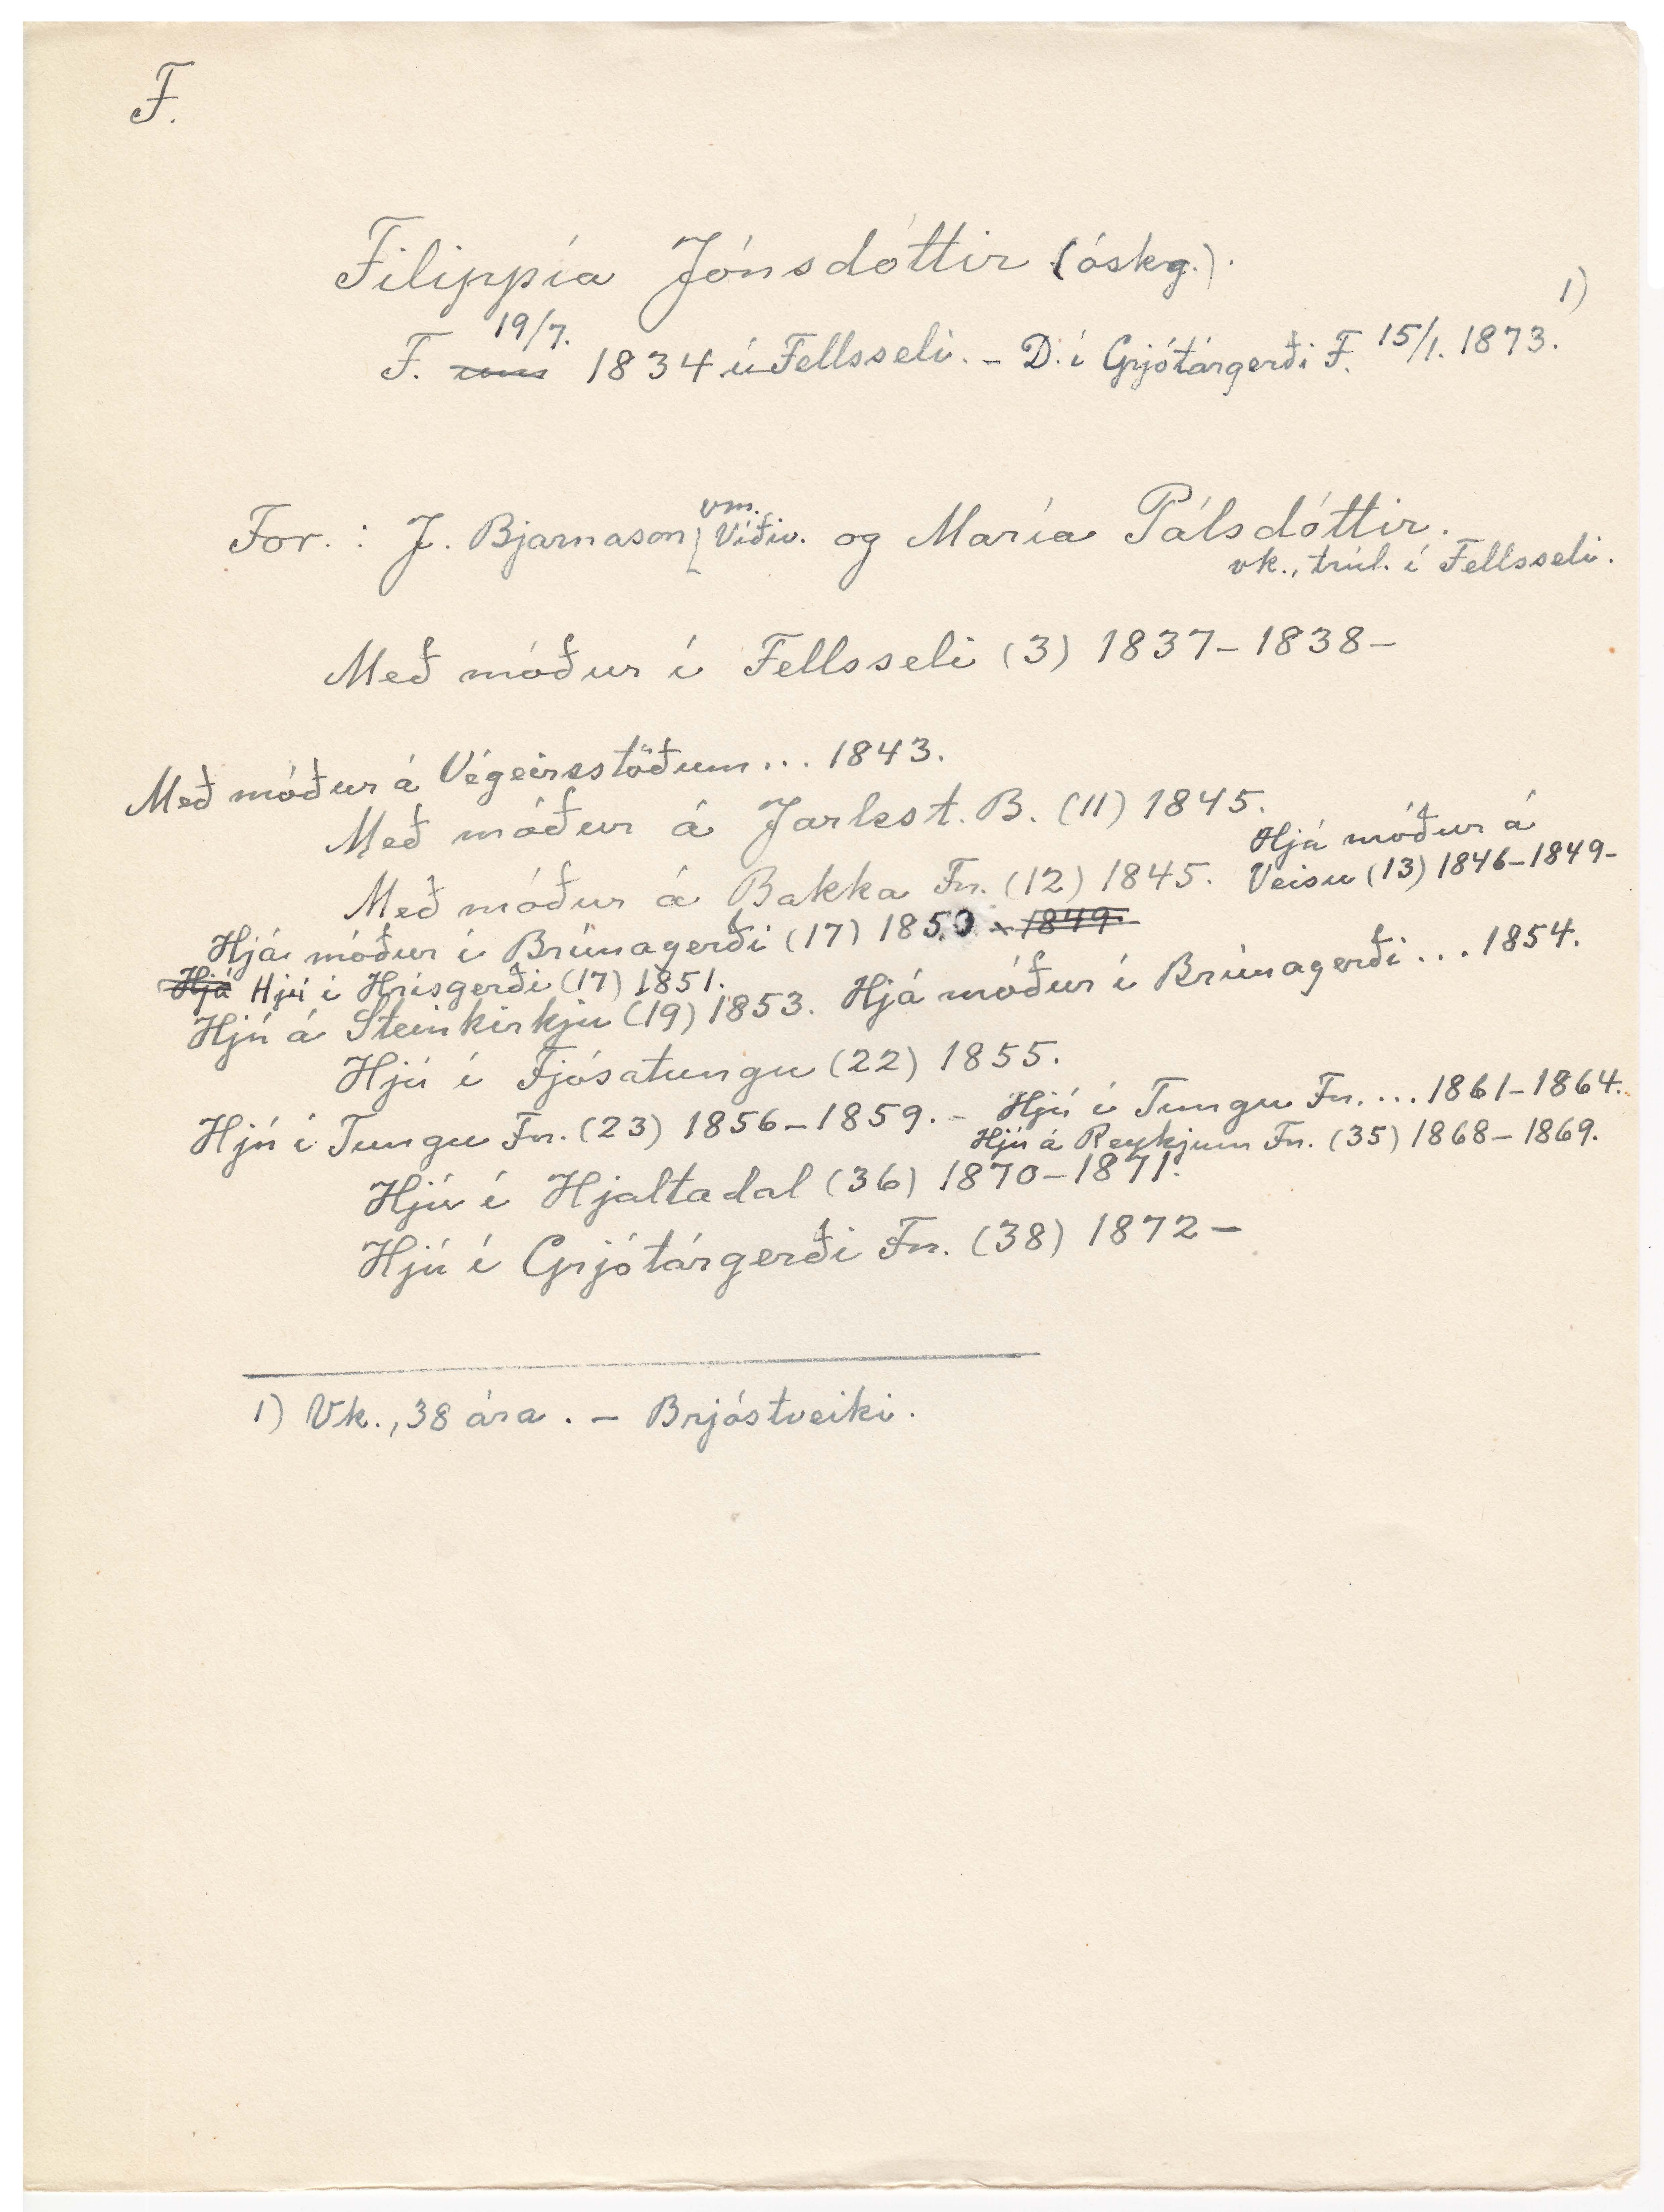 F.
Filippía Jónsdóttir (óskg.).
F. 19/7. 1834 í Fellsseli. – D. í Grjótárgerði F. 15/1. 1873. 1)
For. : J. Bjarnason, vm. Víðiv. og María Pálsdóttir.
vk., trúl. í Fellsseli.
Með móður í Fellsseli (3) 1837–1838–
Með móður á Végeirsstöðum... 1843.
Með móður á Jarlsst. B. (11) 1845.
Með móður á Bakka Fn. (12) 1845. Hjá móður á
Veisu (13) 1846–1849–
Hjá móður í Brúnagerði (17) 1850 – 1849–
Hjá Hjú í Hrísgerði (17) 1851.
Hjú á Steinkirkju (19) 1853. Hjá móður í Brúnagerði ... 1854.
Hjú í Fjósatungu (22) 1855.
Hjú í Tungu Fn. (23) 1856–1859. – Hjú í Tungu Fn. ... 1861–1864.
Hjú á Reykjum Fn. (35) 1868–1869.
Hjú í Hjaltadal (36) 1870–1871.
Hjú í Grjótárgerði Fn. (38) 1872 –
1) Vk., 38 ára. – Brjóstveiki.